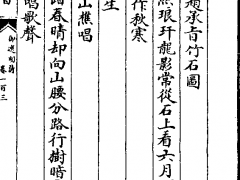 承旨竹石圖
琅玕龍影常從石上看六月
作秋寒
生
山樵唱
春晴却向山腰分路行樹暗
唱歌聲
御選明詩 卷一百三